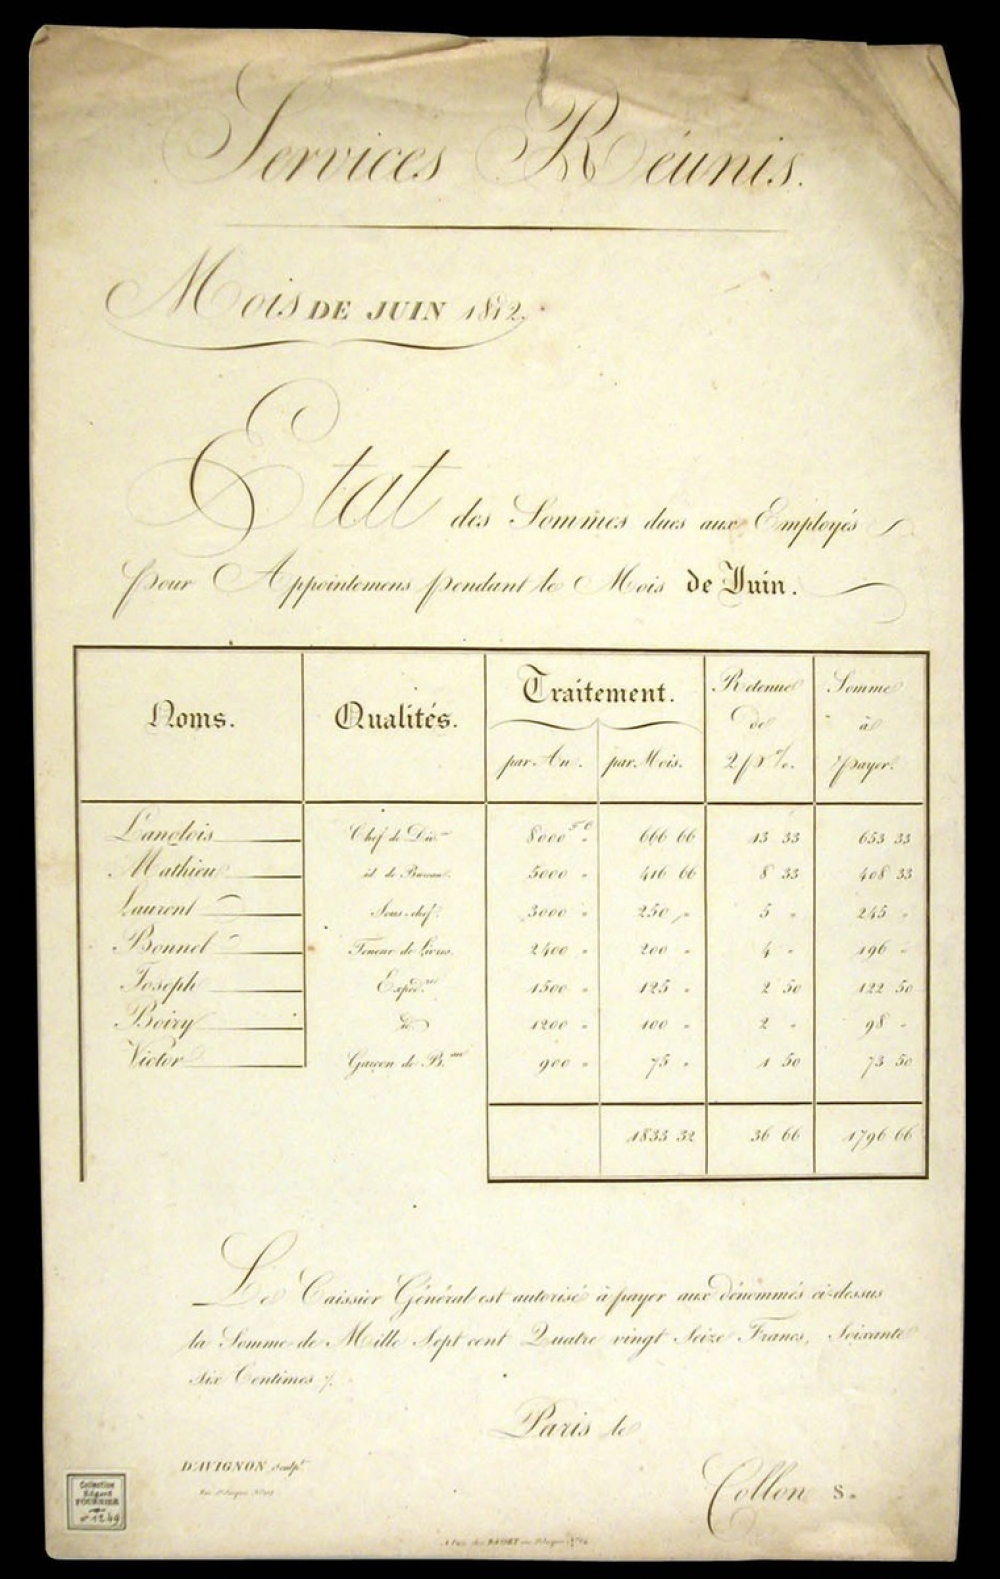 Services Réunis.
Mois DE JUIN 1812.
Etat des Sommes dues aux Employés
pour Appointemens pendant le Mois de Juin.
Noms. Qualités. Traitement. Retenue de 2 p% . Somme à payer.
par An. par Mois.
Langlois Chef de Div.on 8000 F C " 666 66 13 33 653 33
Mathieu id de Bureau. 5000 " 416 66 8 33 408 33
Laurent Sous-chef. 3000 " 250 " 5 " 245 "
Bonnel Teneur de Livres. 2400 " 200 " 4 " 196 "
Joseph Expéd.re 1500 " 125 " 2 50 122 50
Boiry id 1200 " 100 " 2 " 98 "
Victor Garçon de B.au 900 " 75 " 1 50 73 50
1833 32 36 66 1796 66
Le Caissier Général est autorisé à payer aux dénommés ci-dessus
la Somme de Mille Sept cent Quatre vingt Seize Francs, Soixante
Six Centimes
Paris le
D'AVIGNON Sculp.t
Collon S.
Collection
Edgard
FOURNIER
n° 1249
A Paris chez BASSET rue St Jacques N° 64